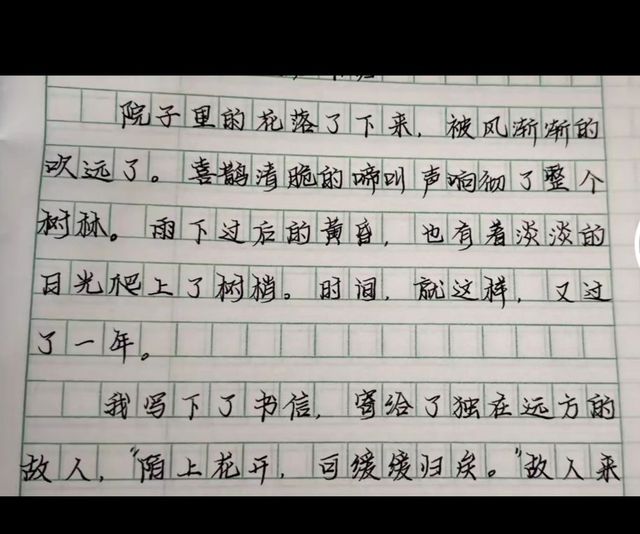 院子里的花落了下来，被风渐渐的
吹远了。喜鹊清脆的啼叫声响彻了整个
树林。雨下过后的黄昏，也有着淡淡的
日光爬上了树梢。时间，就这样，又过
了一年。
我写下了书信，寄给了独在远方的
故人，“陌上花开，可缓缓归矣。”故人来